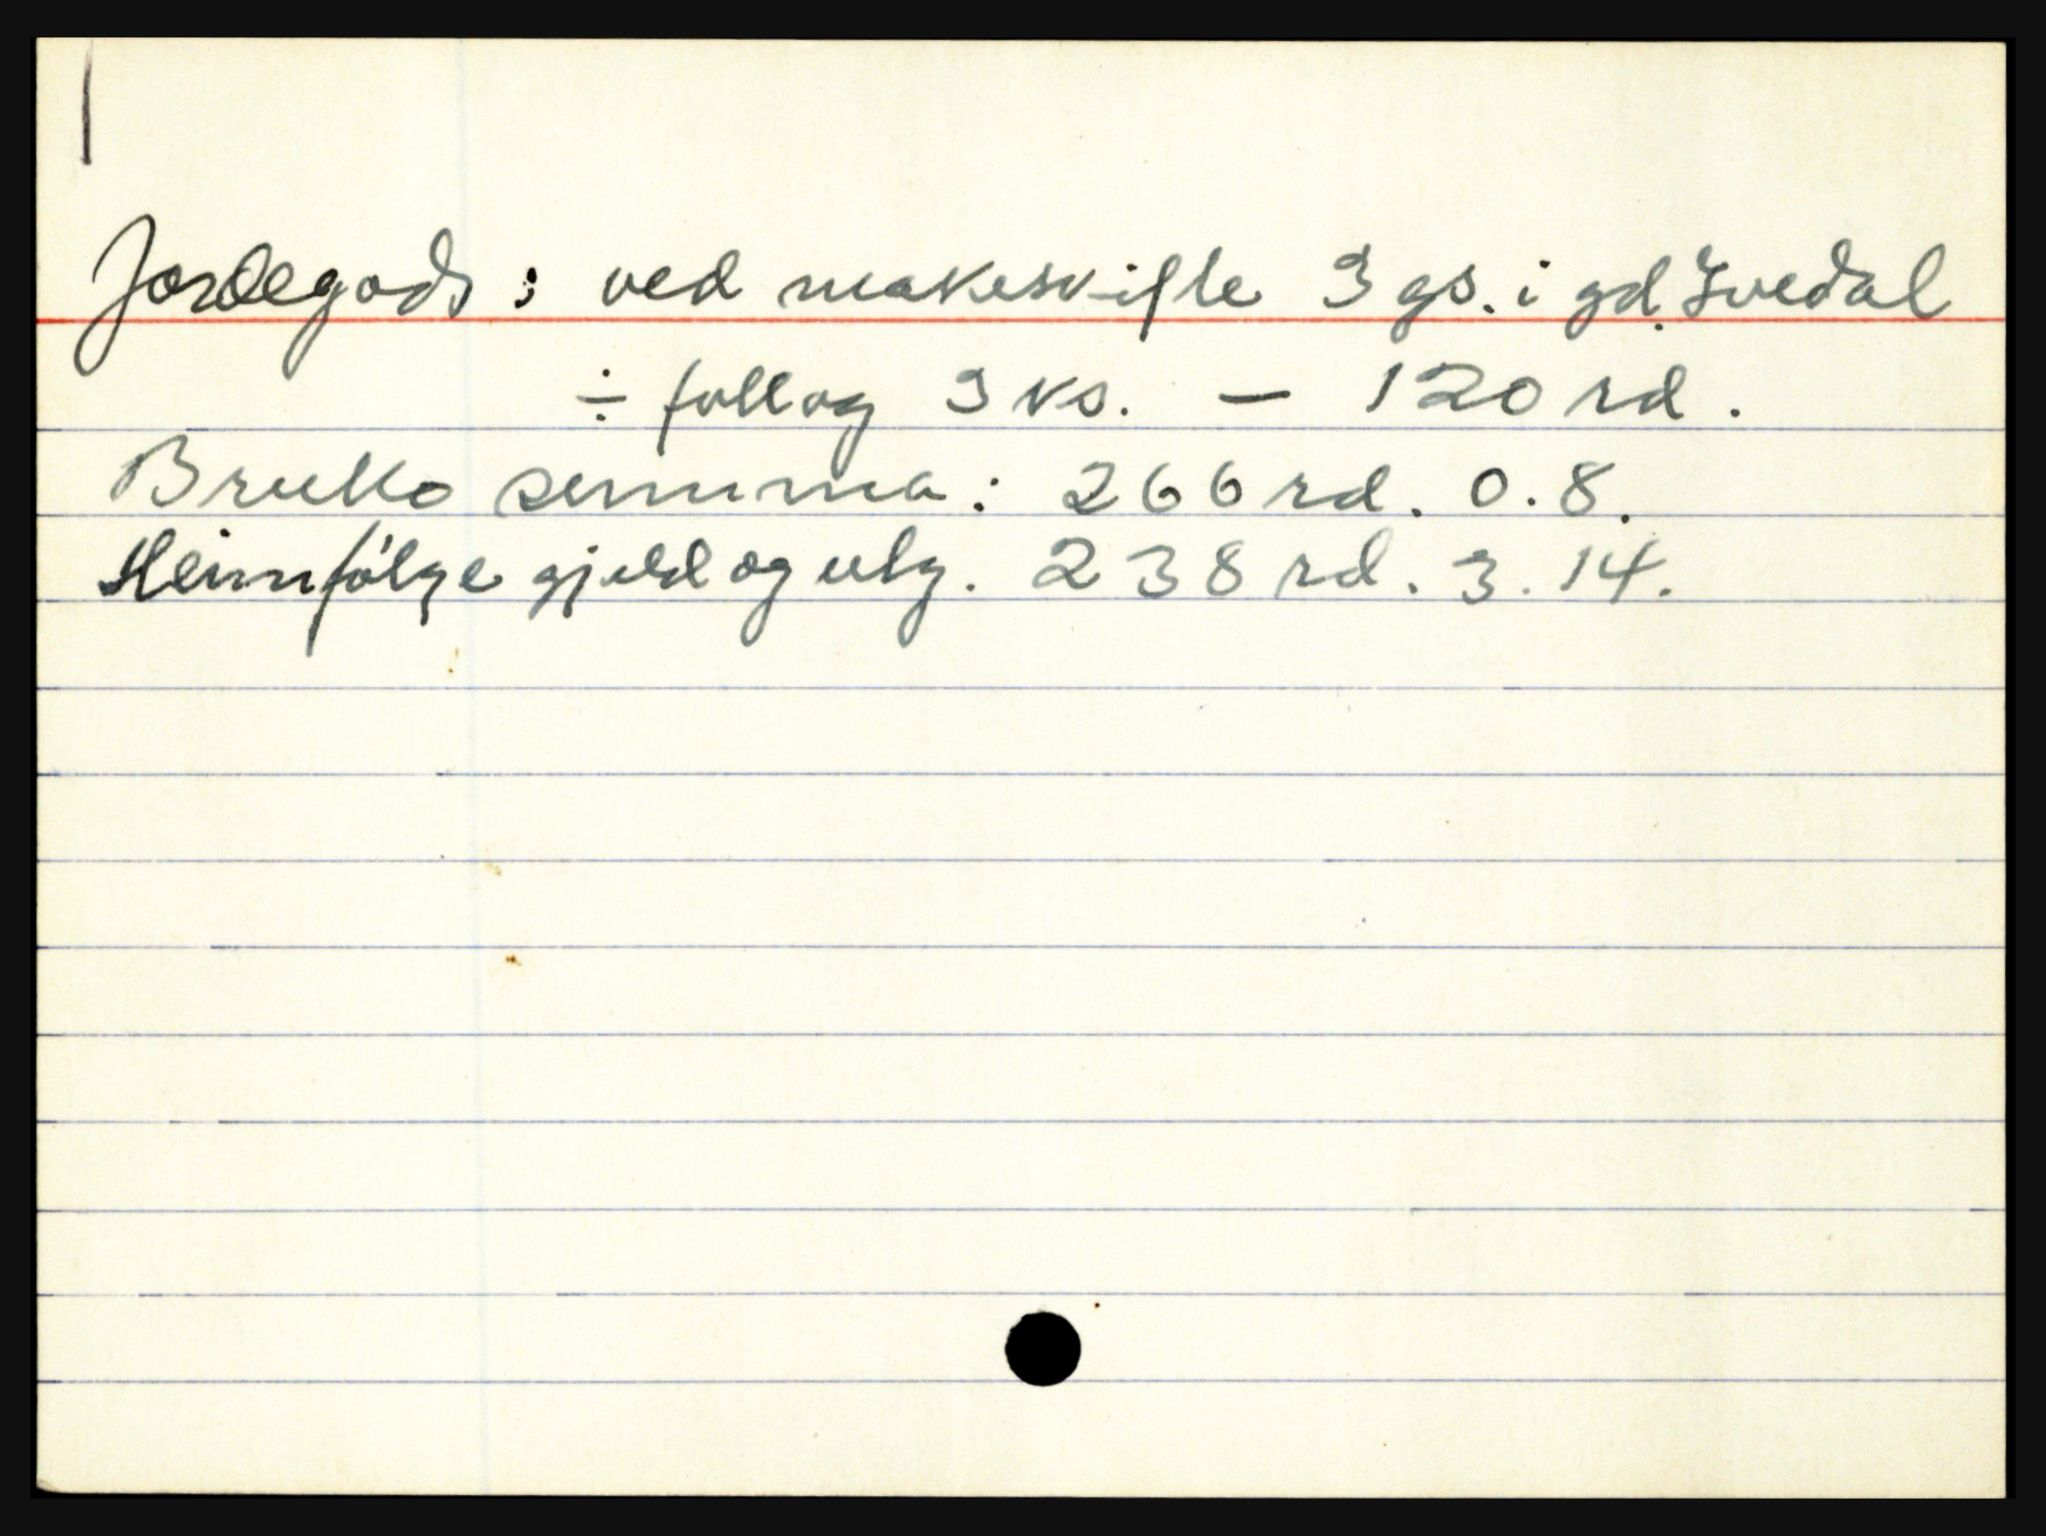 Jordegods: ved makeskifte 3 gs. i gd. Ivedal
÷ follog 3 ks. — 120 rd.
Brutto summa: 266 rd. 0.8.
Heimfølge gjeld og utg. 238 rd. 3. 14.